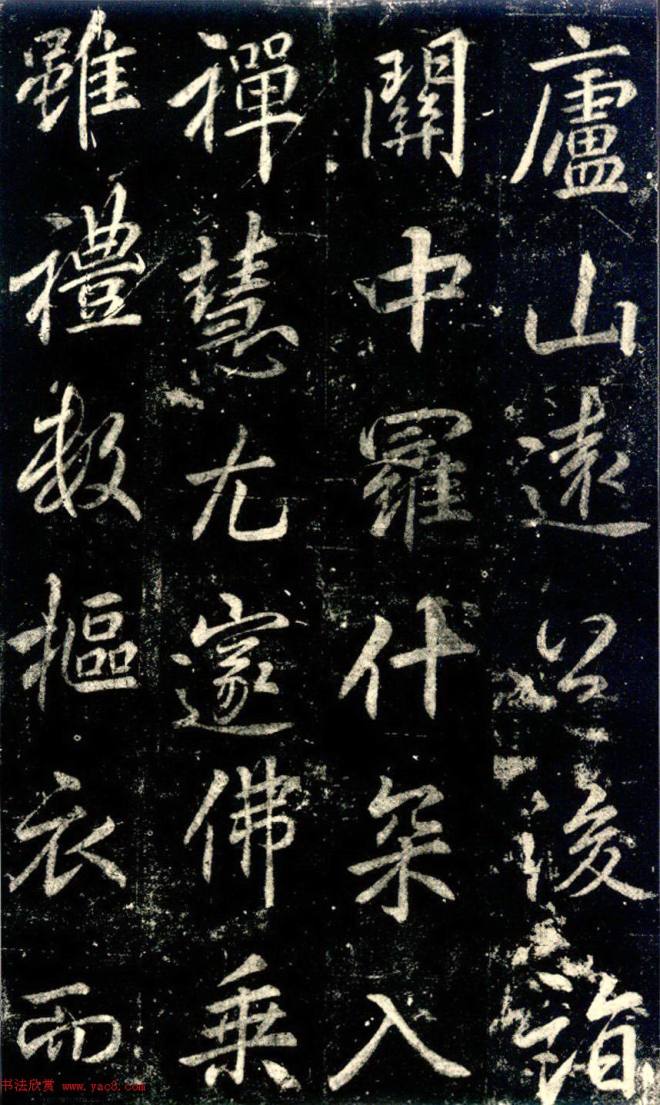 廬山遠公後詣
關中羅什罙入
禪慧尤邃佛乘
雖禮數摳衣而
书法欣赏 www.yac8.com